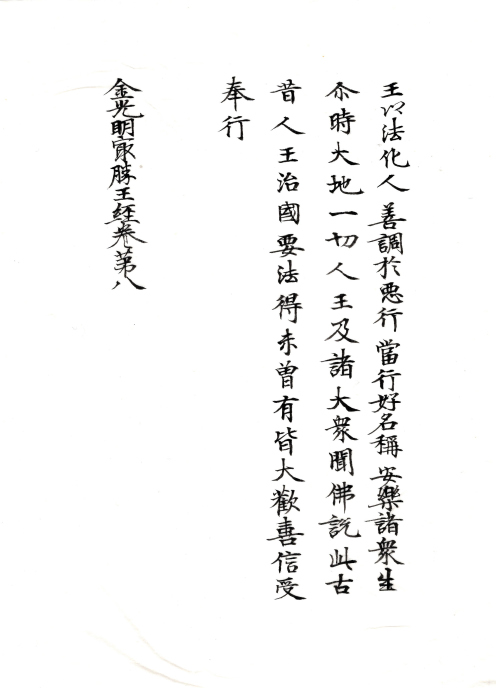 王以法化人 善調於惡行 當行好名稱 安樂諸衆生
尒時大地一切人王及諸大衆聞佛說此古
昔人王治國要法得未曾有皆大歡喜信受
奉行
金光明㝡勝王經卷第八